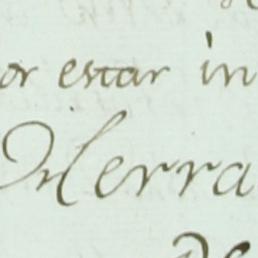 or estar in
Herra